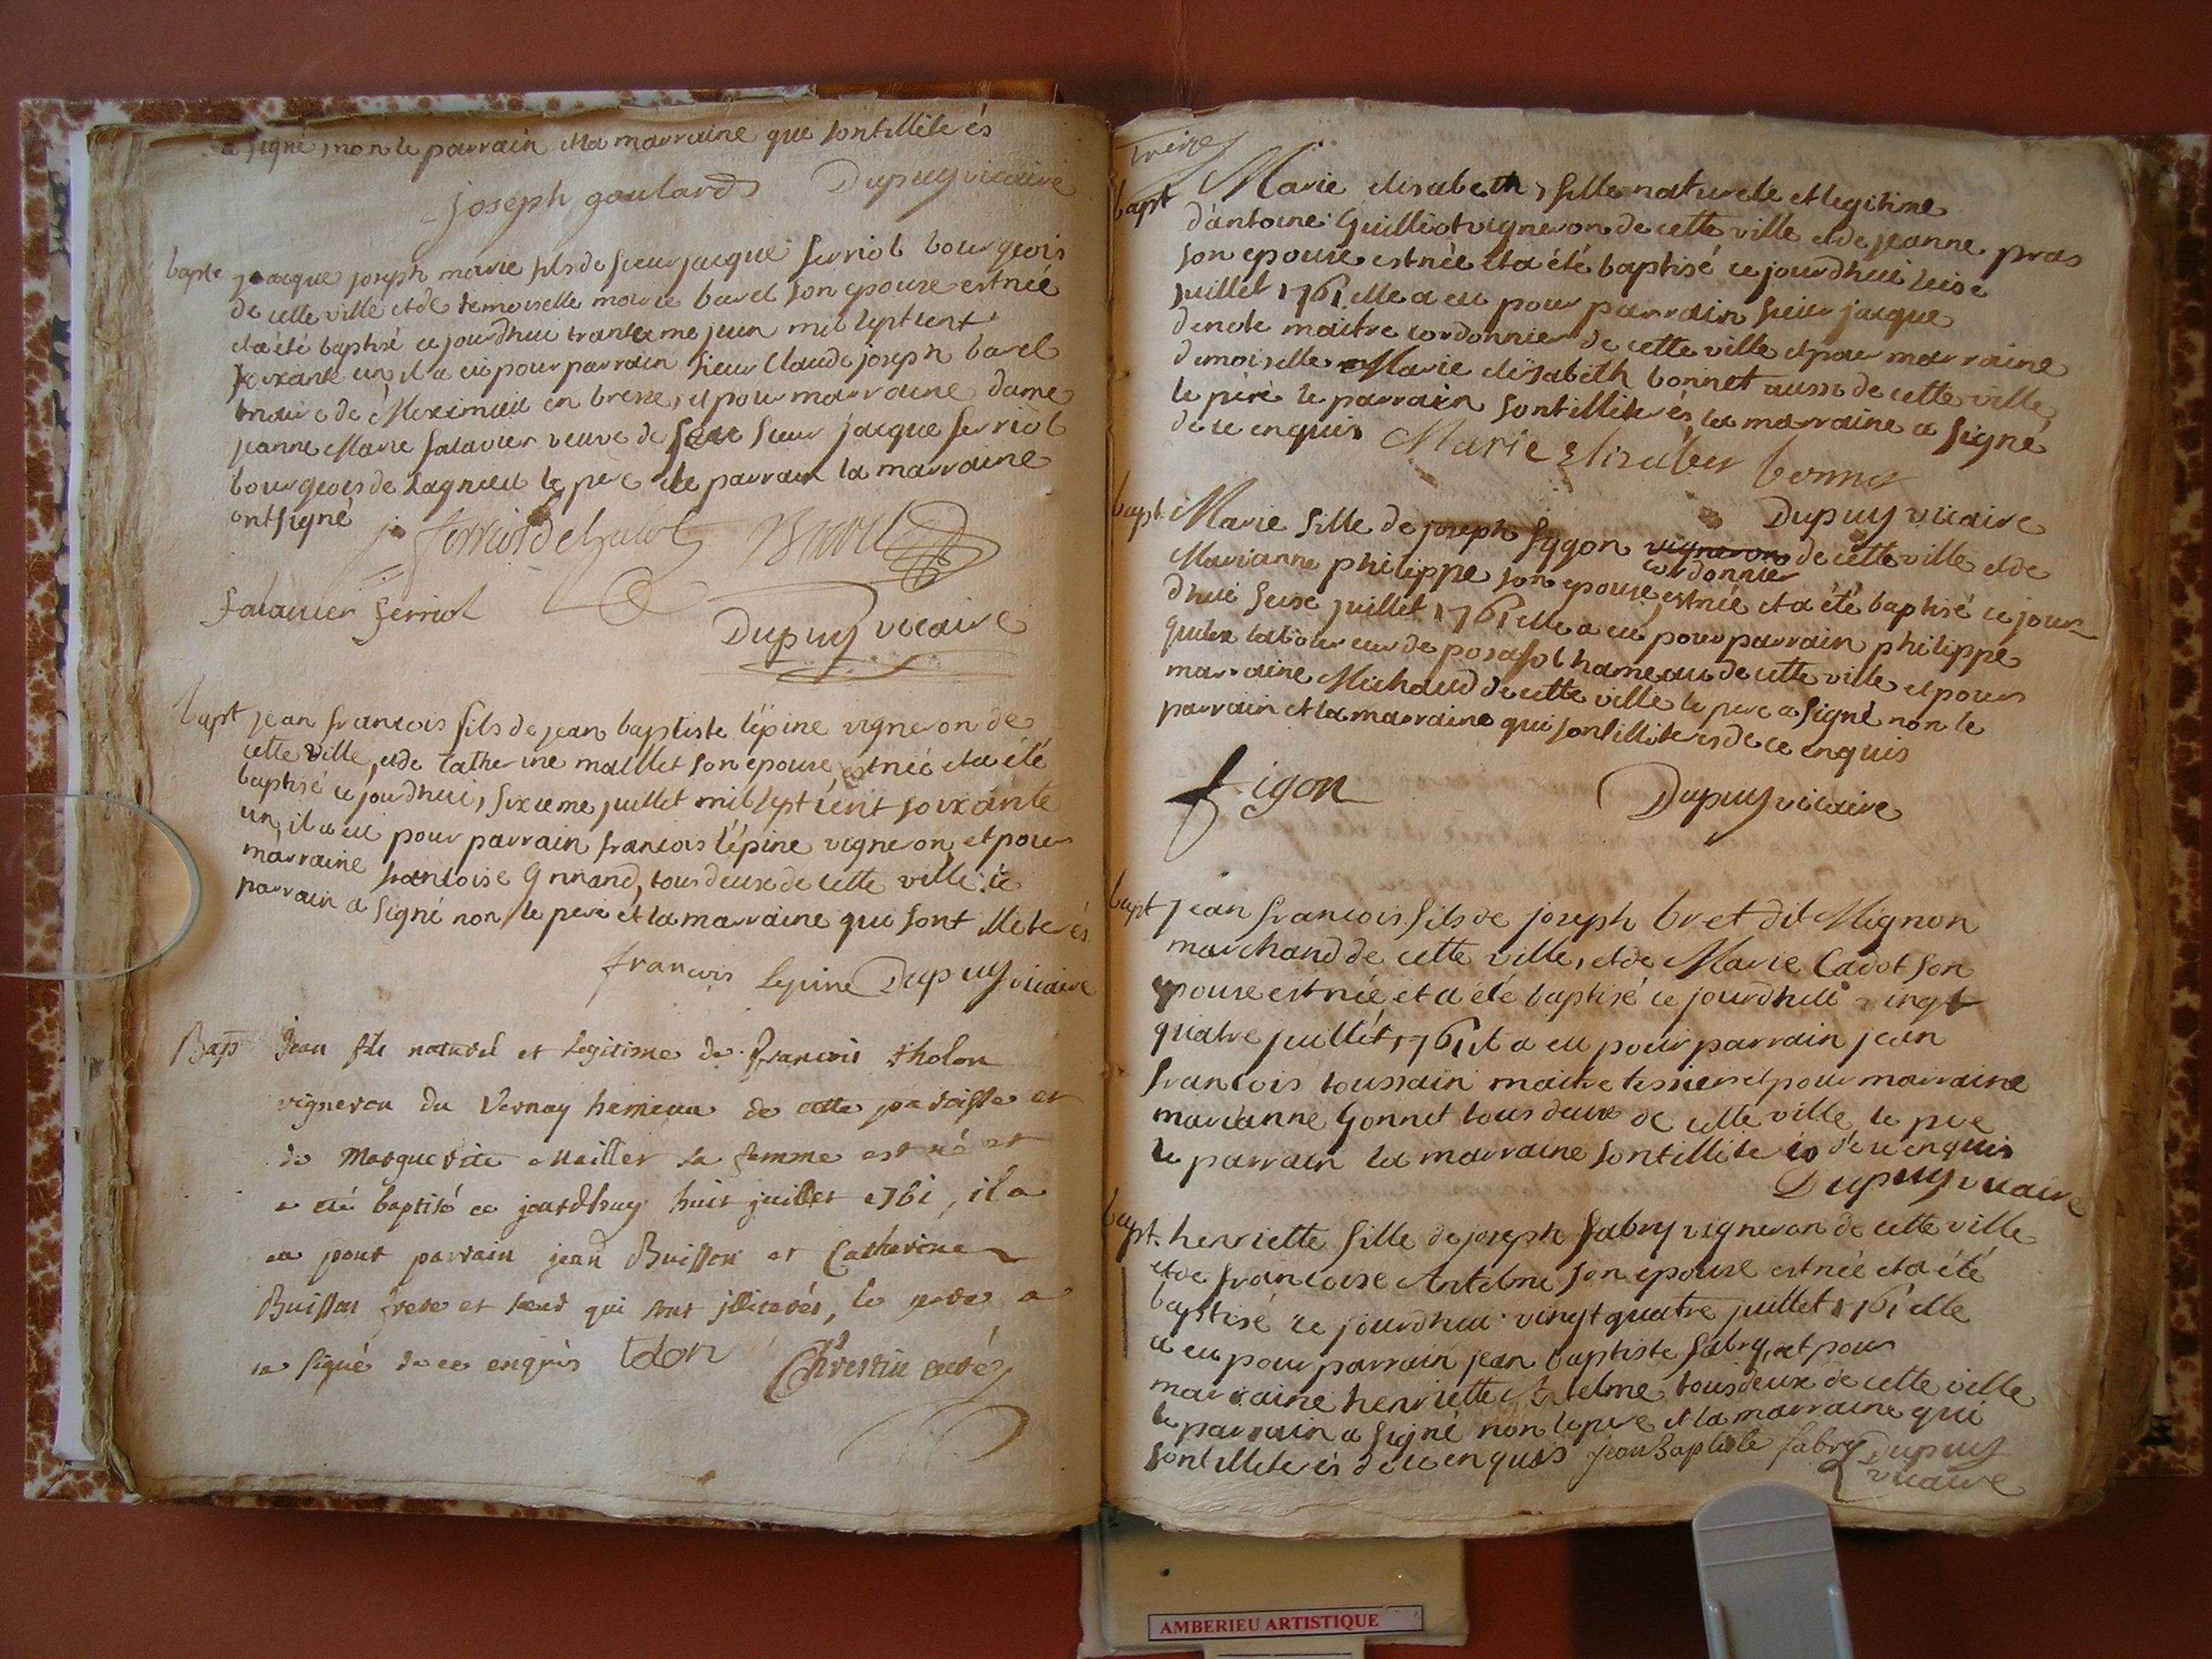 a signé, non le parrain et la marraine qui sont illiterés
joseph goulard Dupuy vicaire
bapte jacque joseph marie fils de sieur jacque ferriol bourgeois
de cette ville et de demoiselle marie barel son epouse est née
et a été baptisé ce jourdhui trantieme juin mil sept cent
soixante un il a eu pour parrain sieur Claude joseph barel
maire de Meximieu en bresse, et pour marraine dame
jeanne Marie salavier veuve de feu sieur jacque ferriol
bourgeois de Lagnieu le pere et le parrain la marraine
ont signé
Barel
salavier ferriol
Dupuy vicaire
bapt jean francois fils de jean baptiste lépine vigneron de
cette ville, et de Catherine maillet son epouse, est née et a été
baptisé ce jourdhui, sixieme juillet mil sept cent soixante
un, il a eu pour parrain francois lépine vigneron, et pour
marraine francoise tous deux de cette ville. le
parrain a signé non le pere et la marraine qui sont illiterés
francois lepine Dupuy vicaire
Bap Jean fils naturel et legitime de francois tholon
vigneron du Vernay hemeau de cette paroisse et
de Marguerite Maillet sa femme est né et
a eté baptisé ce jourdhuy huit juillet 1761, il a
eu pour parrain jean Buisson et Catherine
Buisson frere et soeur qui sont jlliterés, le pere a
signé de ce enquis tolon Chrestin curé
Treize
bapt Marie elisabeth, fille naturele et legitime
d'antoine Guilliot vigneron de cette ville et de jeanne pras
son epouse est née et a été baptisé ce jourdhui seise
juillet 1761 elle a eu pour parrain sieur jacque
maitre cordonnier de cette ville et pour marraine
demoiselle Marie elisabeth bonnet aussi de cette ville
le père le parrain sont illiterés, la marraine a signé
de ce enquis Marie Elizabet bonnet
Dupuy vicaire
bapt. Marie fille de joseph fygon vigneron de cette ville et de
cordonnier
Marianne philippe son epouse, est née et a été baptisé ce jour
dhui seise juillet 1761 elle a eu pour parrain philippe
laboureur de posafol hameau de cette ville et pour
marraine Michaud de cette ville le pere a signé non le
parrain et la marraine qui sont illiterés de ce enquis
figon Dupuy vicaire
bapt jean francois fils de joseph bret dit Mignon
marchand de cette ville, et de Marie Cadot son
epouse est née et a été baptisé ce jourdhui vingt
quatre juillet 1761 il a eu pour parrain jean
francois toussain maitre tessier et pour marraine
marianne Gonnet tous deux de cette ville le pere
le parrain la marraine sont illiterés de ce enquis
Dupuy vicaire
bapt. henriette fille de joseph fabry vigneron de cette ville
et de francoise Antelme son epouse est née et a été
baptisé ce jourdhui vingt quatre juillet 1761 elle
a eu pour parrain jean baptiste fabry, et pour
marraine henriette Antelme tous deux de cette ville
le parrain a signé non le pere et la marraine qui
sont illiterés de ce enquis jean Baptiste fabry Dupuy
vicaire
AMBERIEU ARTISTIQUE